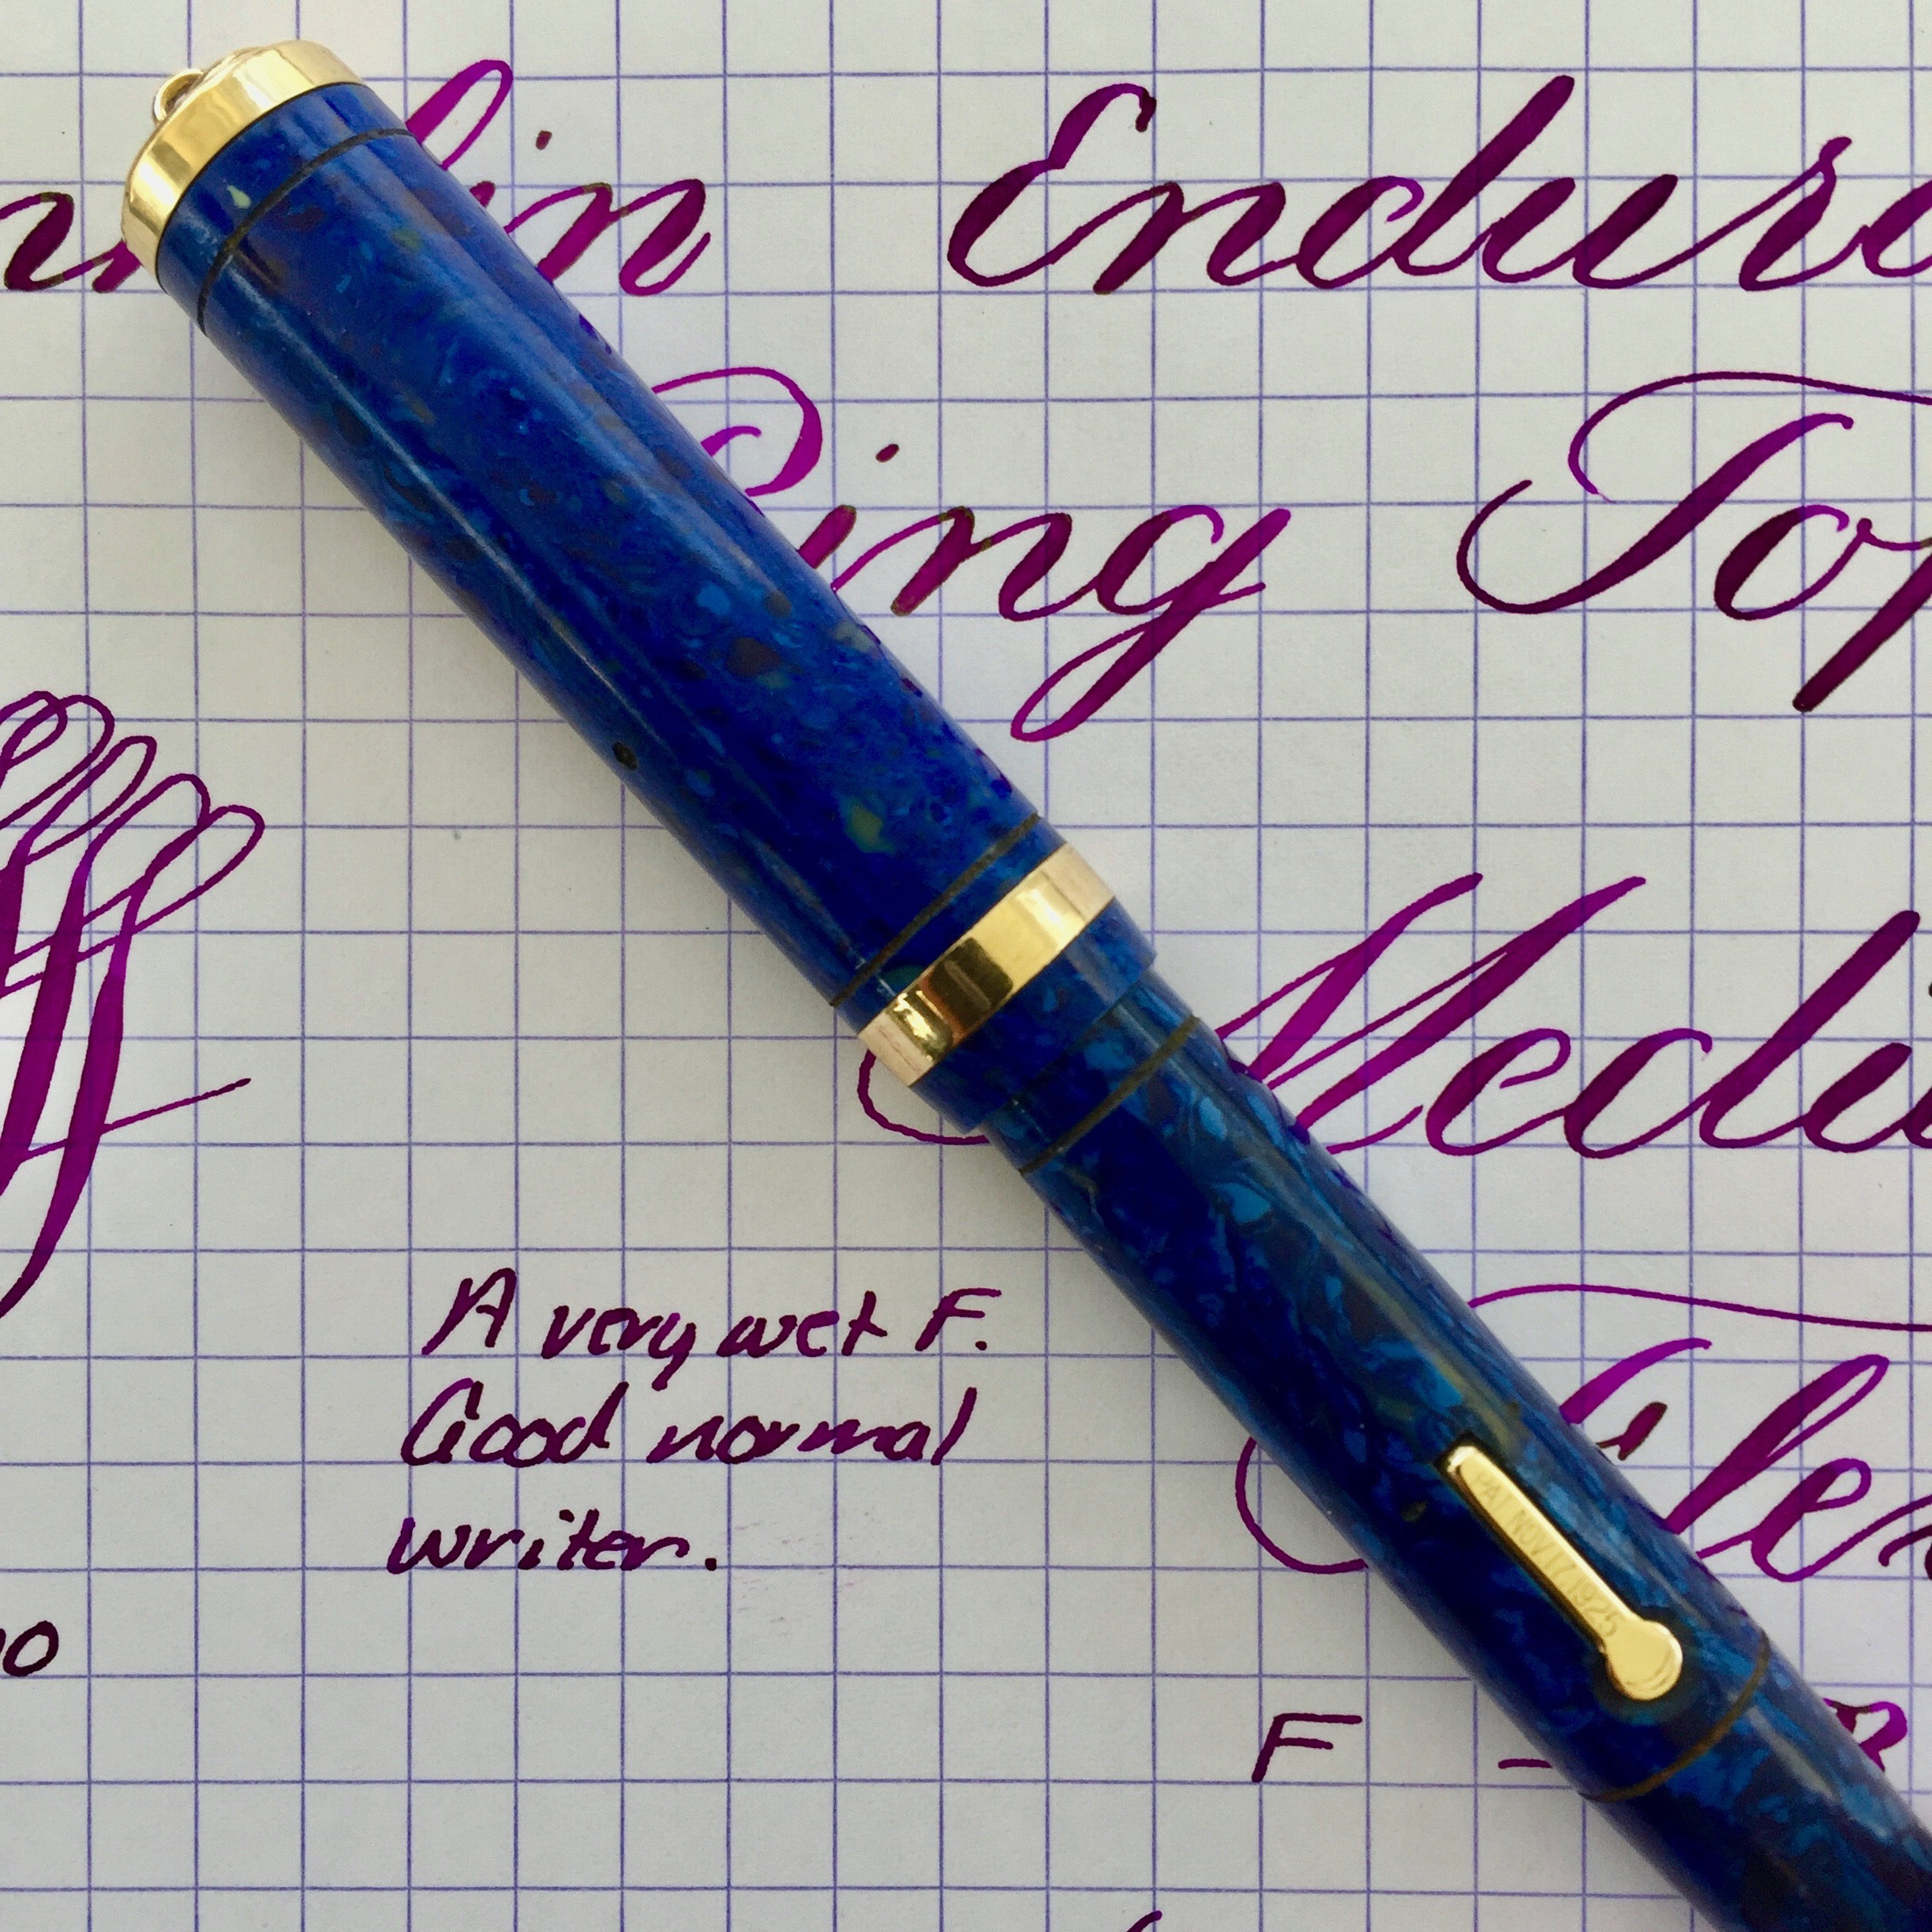 Endura
Ring Top
Medi
A very wet F.
Good normal
writer.
PAT. NOV. 17, 1925
F -